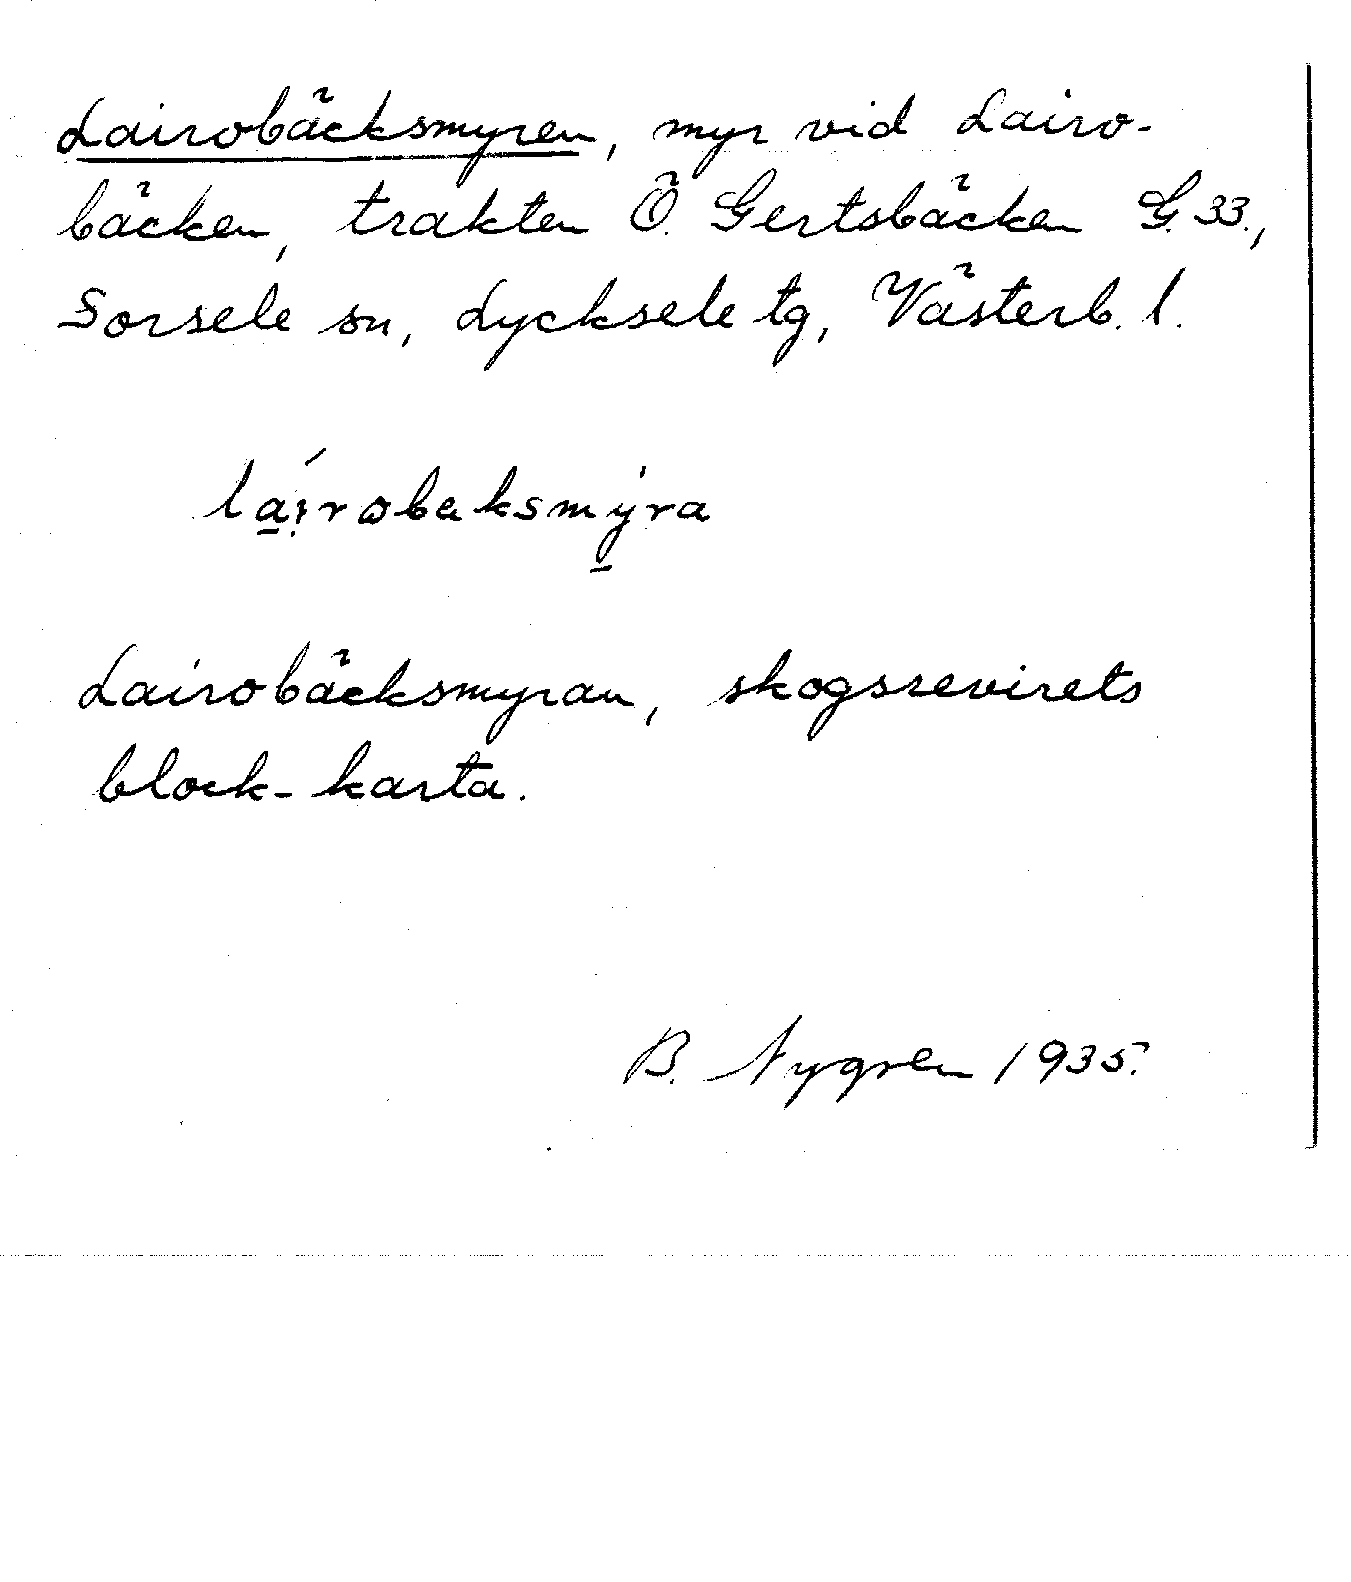 Lairobäcksmyren, myr vid Lairo-
bäcken, trakten Ö. Gertsbäcken G. 33.,
Sorsele sn, Lycksele tg, Västerb. l.
la̱i̯robɐksmẏ̱ra
Lairobäcksmyran, skogsrevirets
block-karta.
B. Nygren 1935.